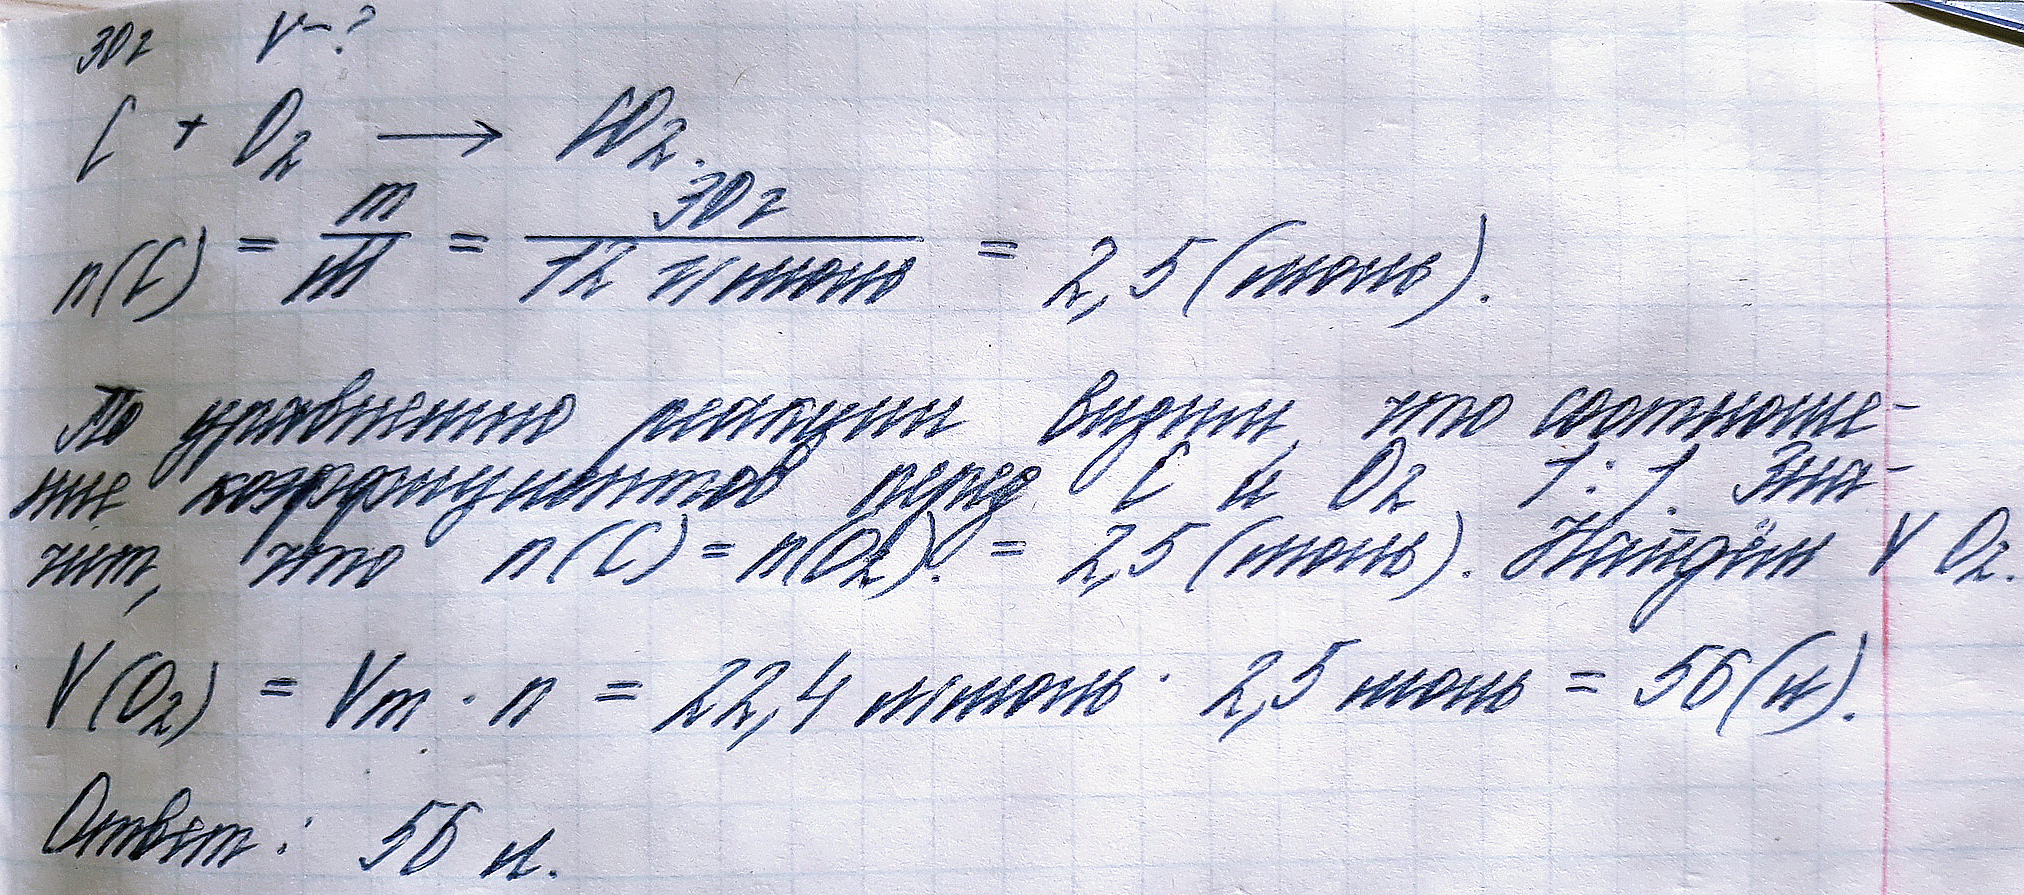 30г V-?
C + O2 → CO2.
n(C) = m/M = 30г/12 г/моль = 2,5 (моль).
По уравнению реакции видим, что соотноше-
ние коэффициентов перед C и O2 1:1. Зна-
чит, что n(C) = n(O2). = 2,5 (моль). Найдём V O2.
V(O2) = Vm · n = 22,4 л/моль · 2,5 моль = 56 (л).
Ответ: 56 л.